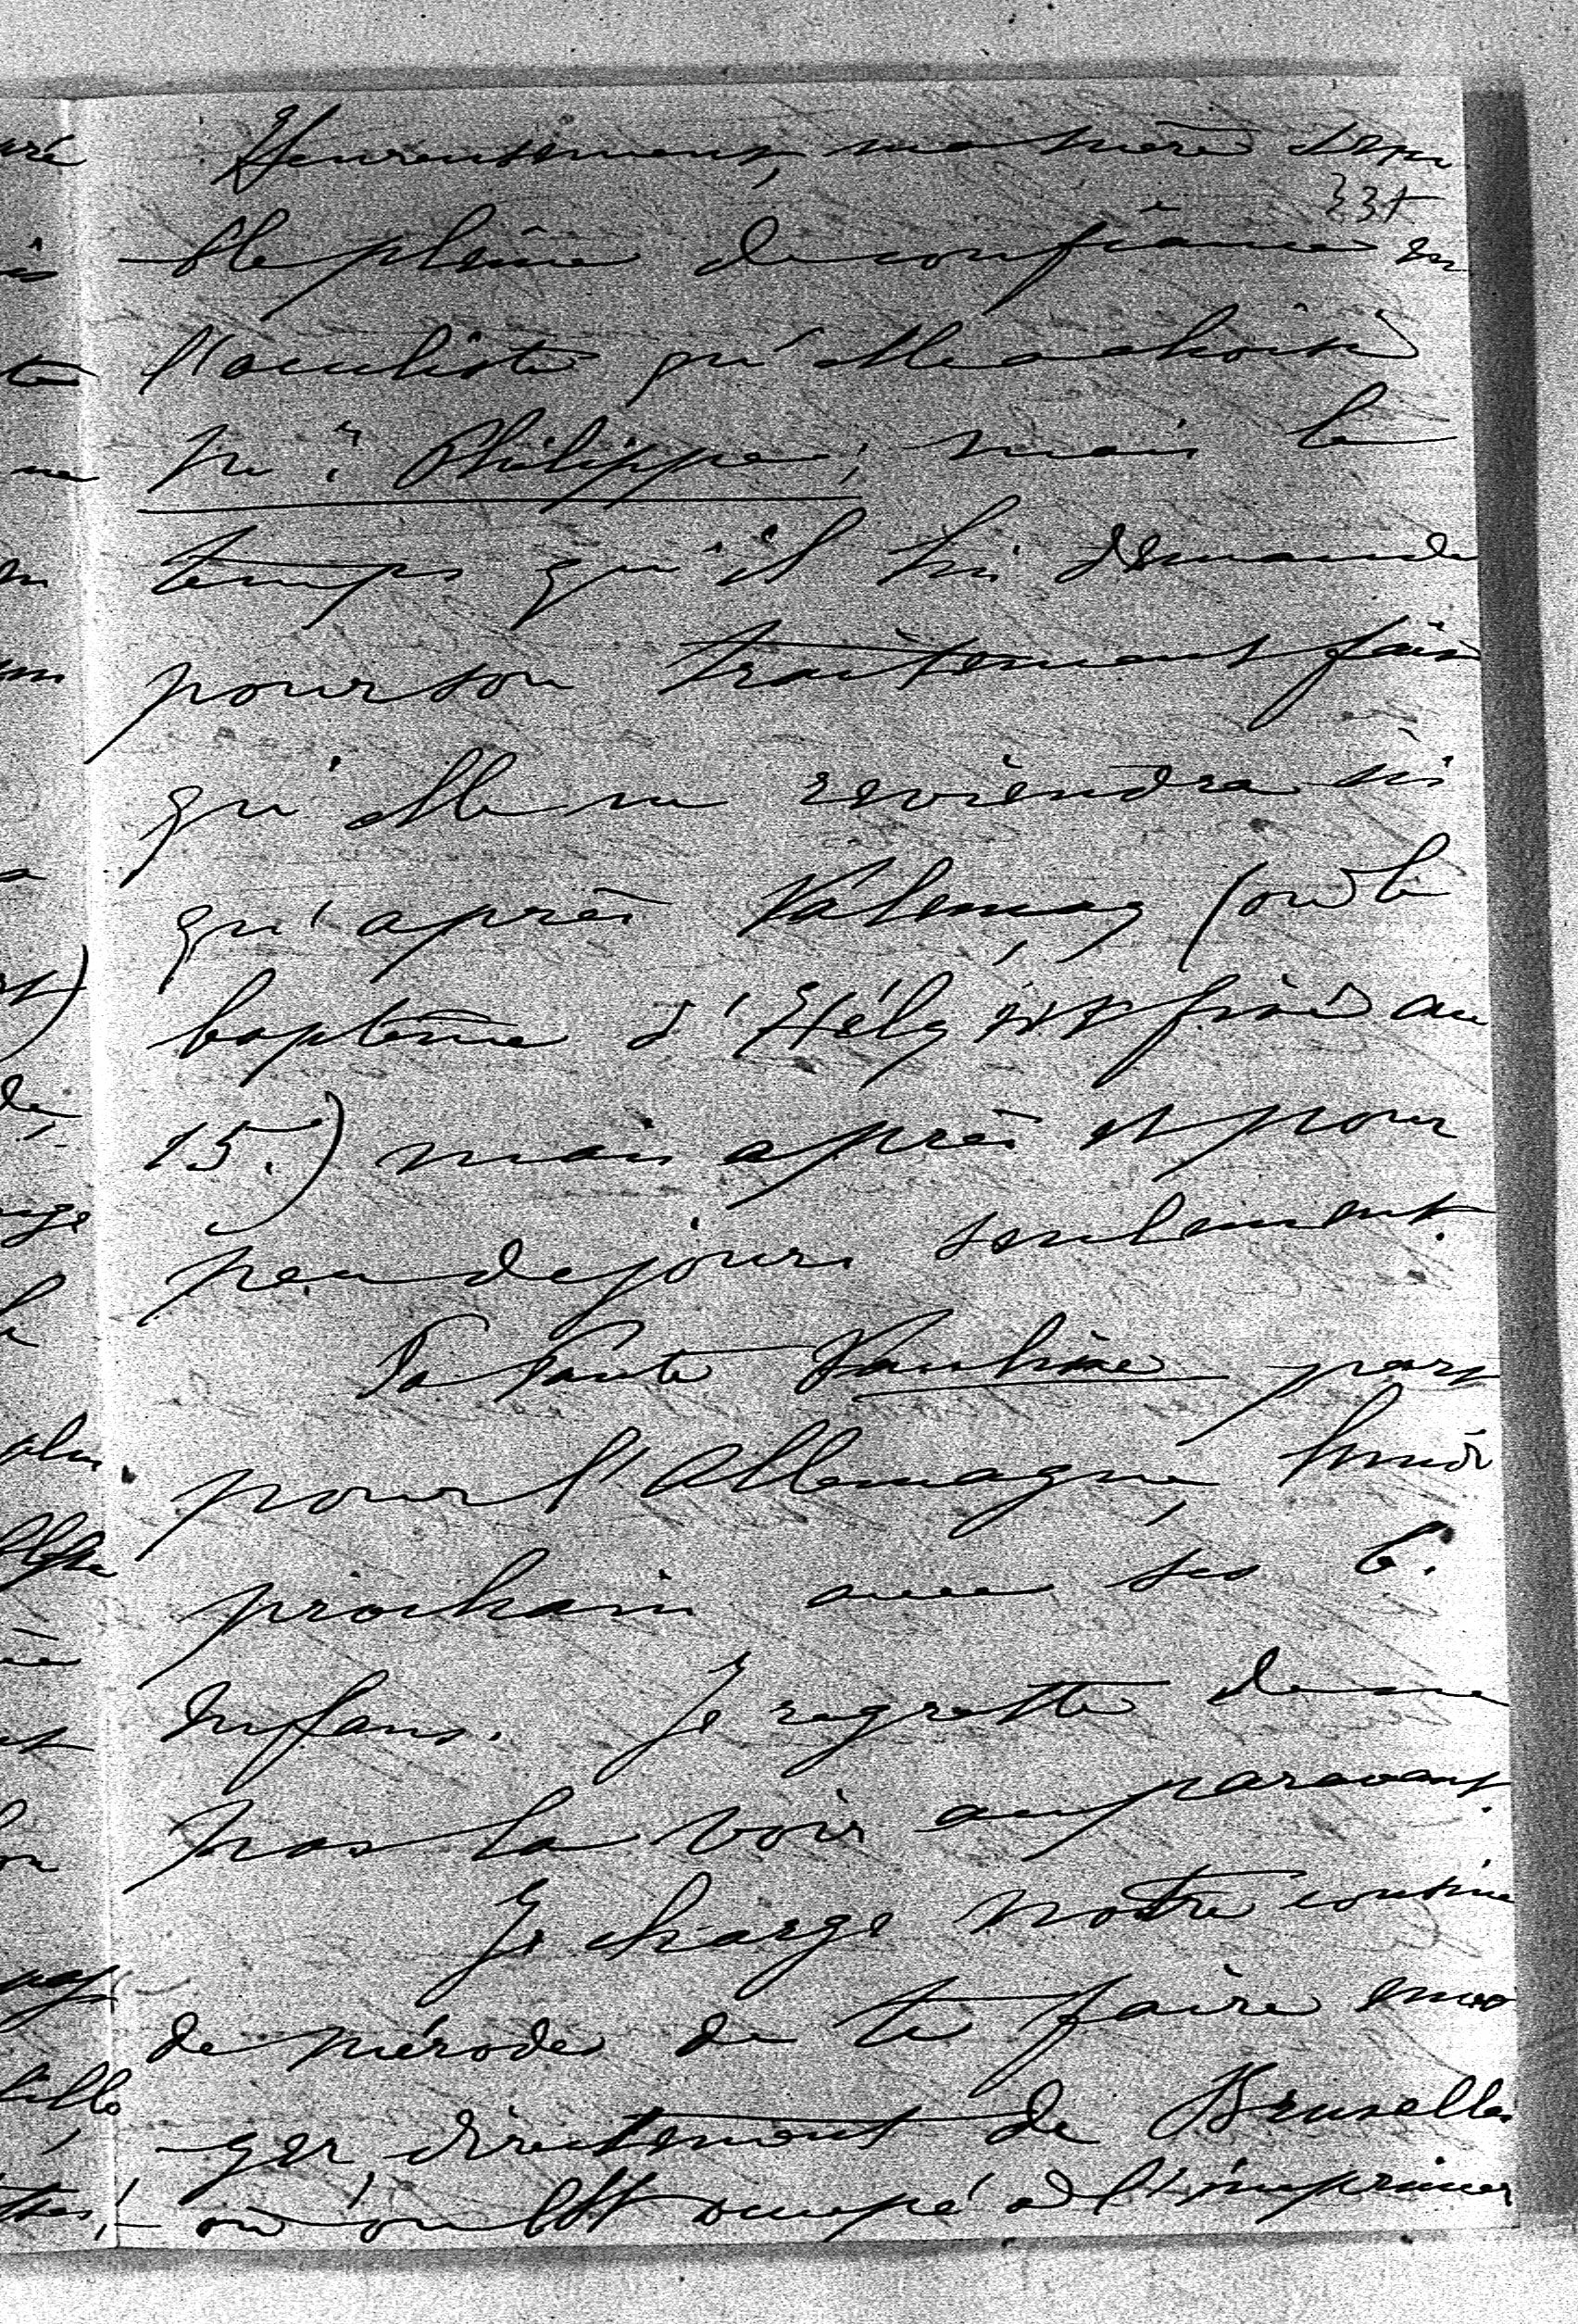 Heureusement, ma mère sem
331
-ble pleine de confiance en
l'oculiste qu'elle a choisi
Mr Philippe; mais le
temps qu'il lui demande
pour son traitement fait
qu'elle ne reviendra ici
qu'après Valençay (où le
baptême d'Hély est fixé au
15.) mais après et pour
peu de jours seulement.
Ta Tante Pauline part
pour l'Allemagne, lundi
prochain avec ses 6.
Enfans. Je regrette de ne
pas la voir auparavant.
Je charge notre cousine
de Mérode de te faire envo
-yer directement de Bruxelles
où on est occupé à l'imprimer